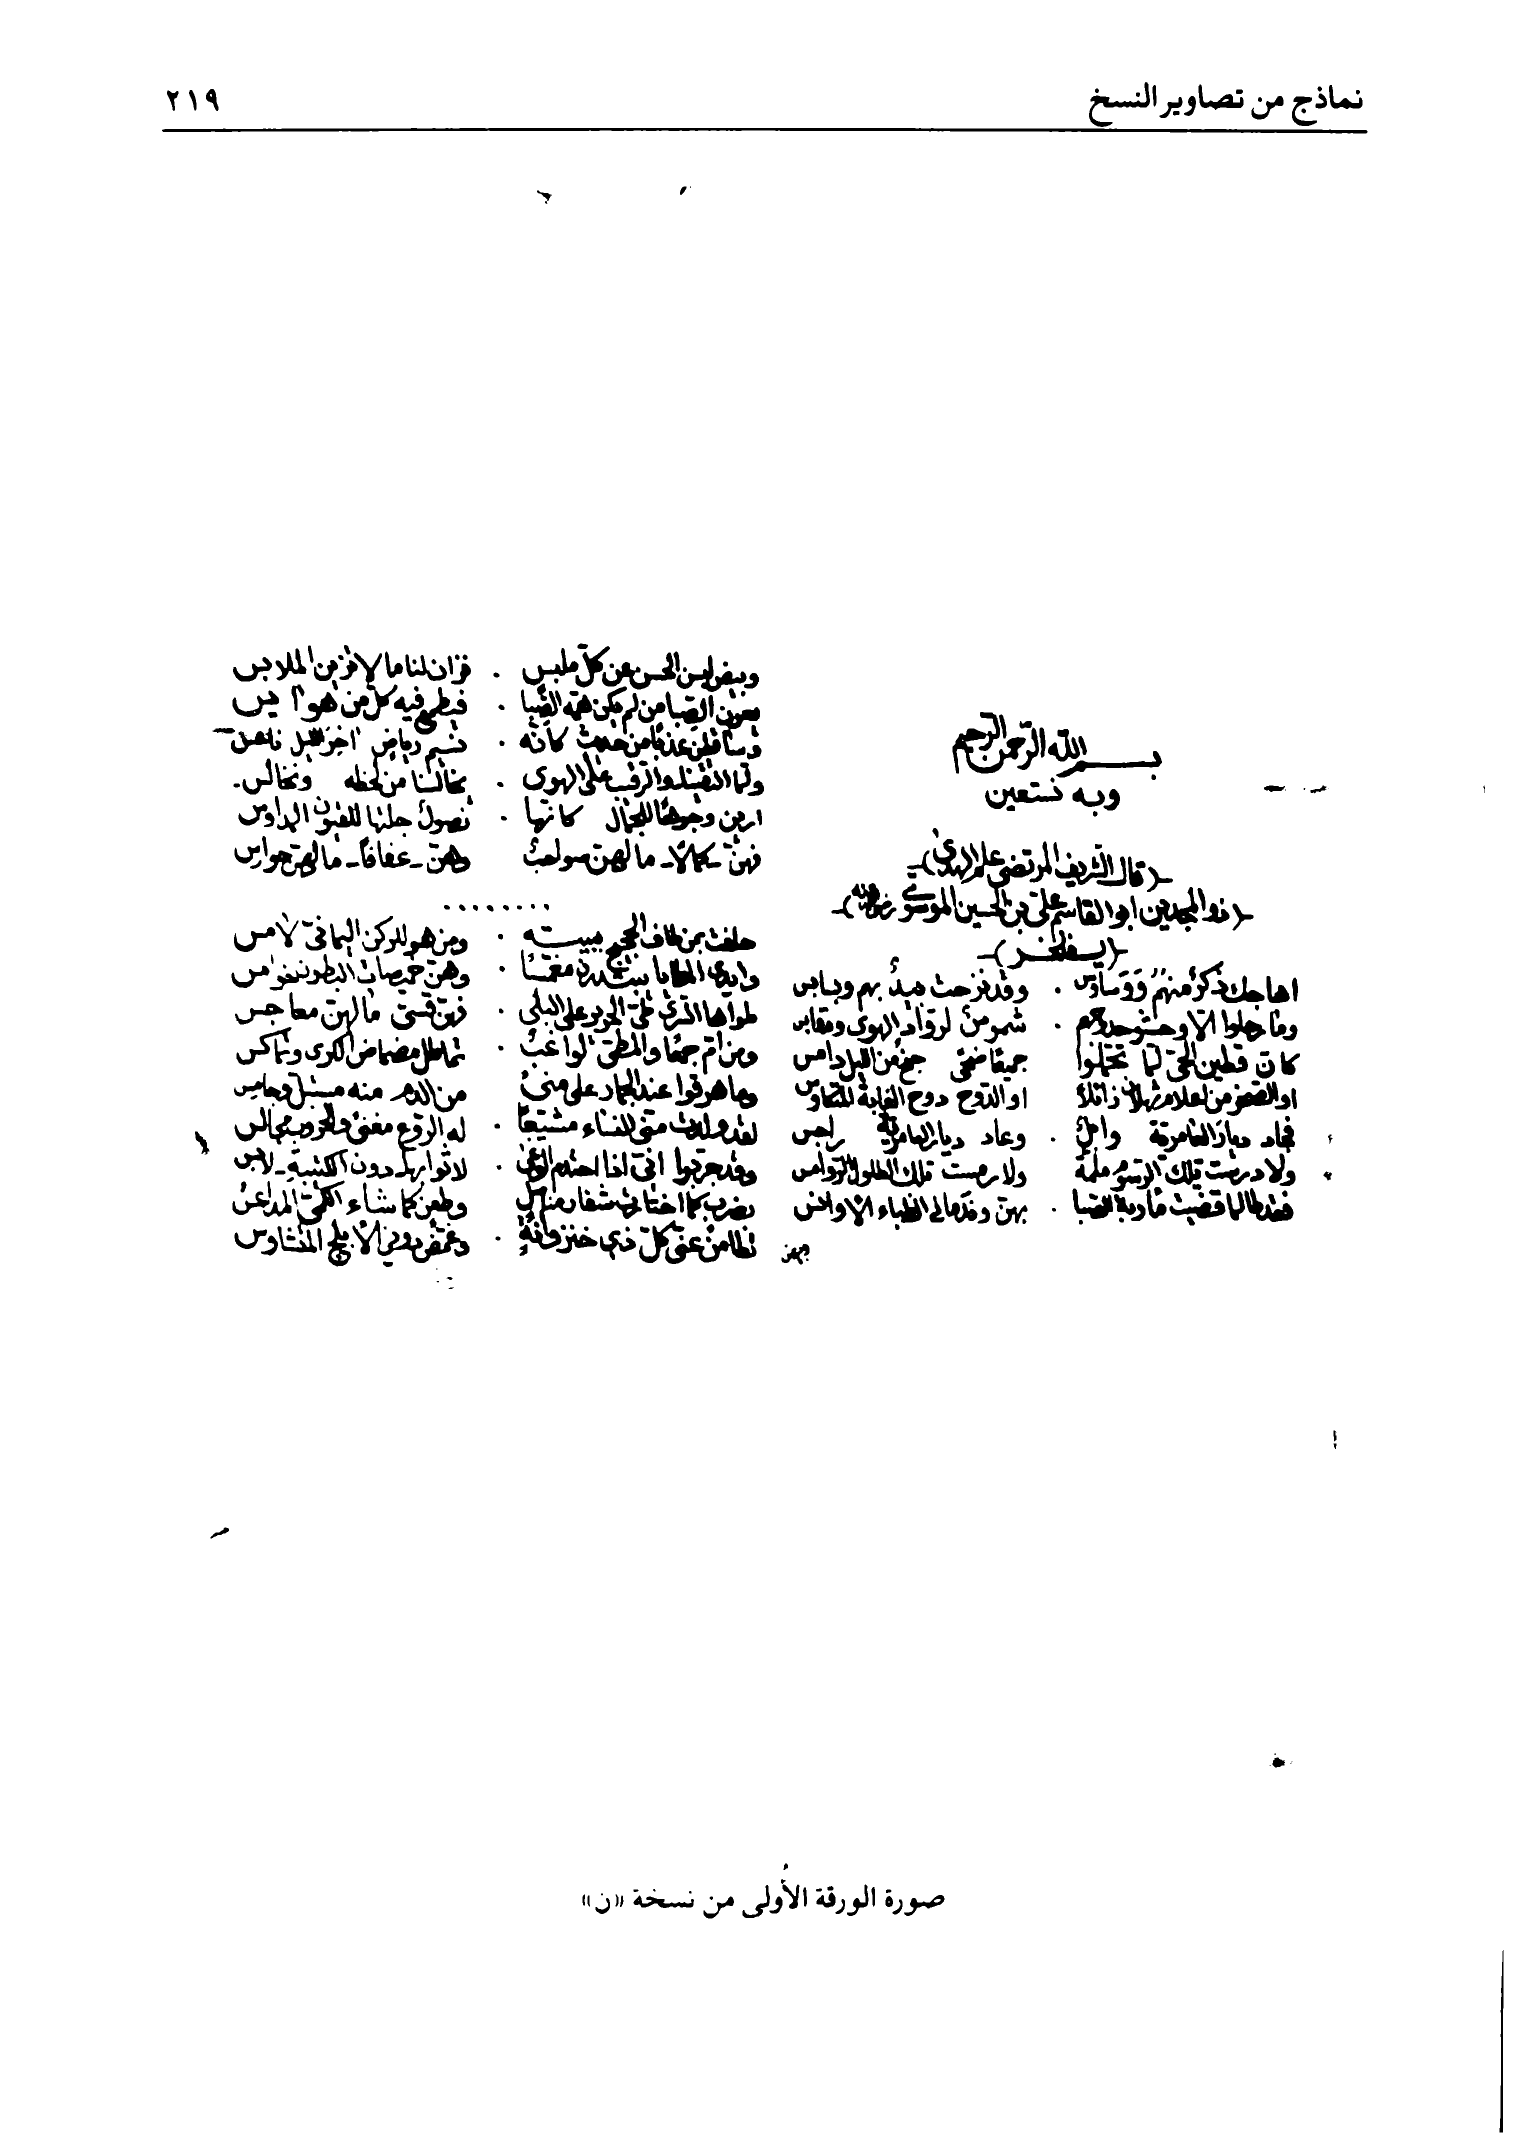 نماذج من تصاوير النسخ ٢١٩
بسم الله الرحمن الرحيم
وبه نستعين
(قال الشريف المرتضى علم الهدى)
(ذو المجدين ابو القاسم علي بن الحسين الموسوي رضي الله عنه)
(يفتخر)
اهاجك ذكر منهم ووساوس . وقد نزحت بيد بهم وبسابس
وما رحلوا الا وحشو حدوجهم . شموس لرواد الهوى ومقابس
كان قطين الحي لما تحملوا جميعا ضحى جنح من الليل دامس
او الصخر من اعلام ثهلان زائلا او الدوح دوح الغابة المتكاوس
فجاد ديار العامرية وابل . وعاد ديار العامرية راجس
ولا درست تلك الرسوم ملمة ولا رمست تلك الطلول الروامس
فقد طالما قضيت مأربة الصبا . بهن وقدما لي الظباء الاوانس
وبيض لبسن الحسن عن كل ملبس . فزان لنا ما لا تزين الملابس
يعرن الصبا من لم يكن همه الصبا . فيطمع فيه كل من هو آيس
وساقطن عذبا من حديث كأنه . نسيم رياض آخر الليل ناعس
ولما التقينا والرقيب على الهوى . يخالسنا من لحظه ونخالس.
ارين وجوها للجمال كانها . نصول جلتها للقيون المداوس
فهن ـ كمالا ـ ما لهن مواحب وهن ـ عفافا ـ ما لهن حوارس
........
حلفت بمن طاف الحجيج ببيته . ومن هو للركن اليماني لامس
وايدي المطايا . وهن خميصات البطون خوامس
طواها السرى طي الحرير على البلى . فهن قسي ما لهن معاجس
ومن ام جمعا والمطي لواغب . تماطل مضماض الكرى وتماكس
وما هرقوا عند الجمار على منى من الدم منه مستبل وجامس
لقد ولدت مني النساء مشيعا . له الروع مغنى والحروب مجالس
وقد جربوا اني اذا احتدم الوغى . لاثوابها ـ دون الكتيبة ـ لابس
بضرب كما اختارت شفار مناصل وطعن كما شاء الكمي المداعس
تطامن عني كل ذي خنزوانة . وغمض دوني الابلج المتشاوس
صورة الورقة الأولى من نسخة «ن»